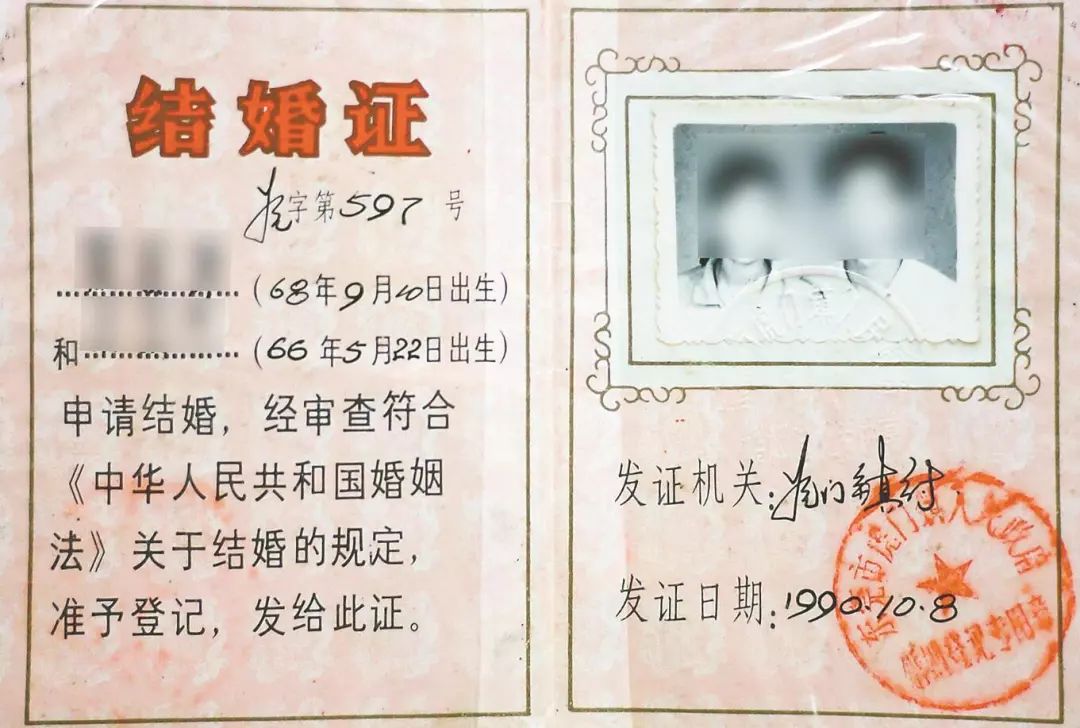 结婚证
虎字第597号
(68年9月10日出生)
和(66年5月22日出生)
申请结婚，经审查符合
《中华人民共和国婚姻
法》关于结婚的规定，
准予登记，发给此证。
发证机关：虎门镇府
发证日期：1990.10.8
东莞市虎门镇人民政府
婚姻登记专用章